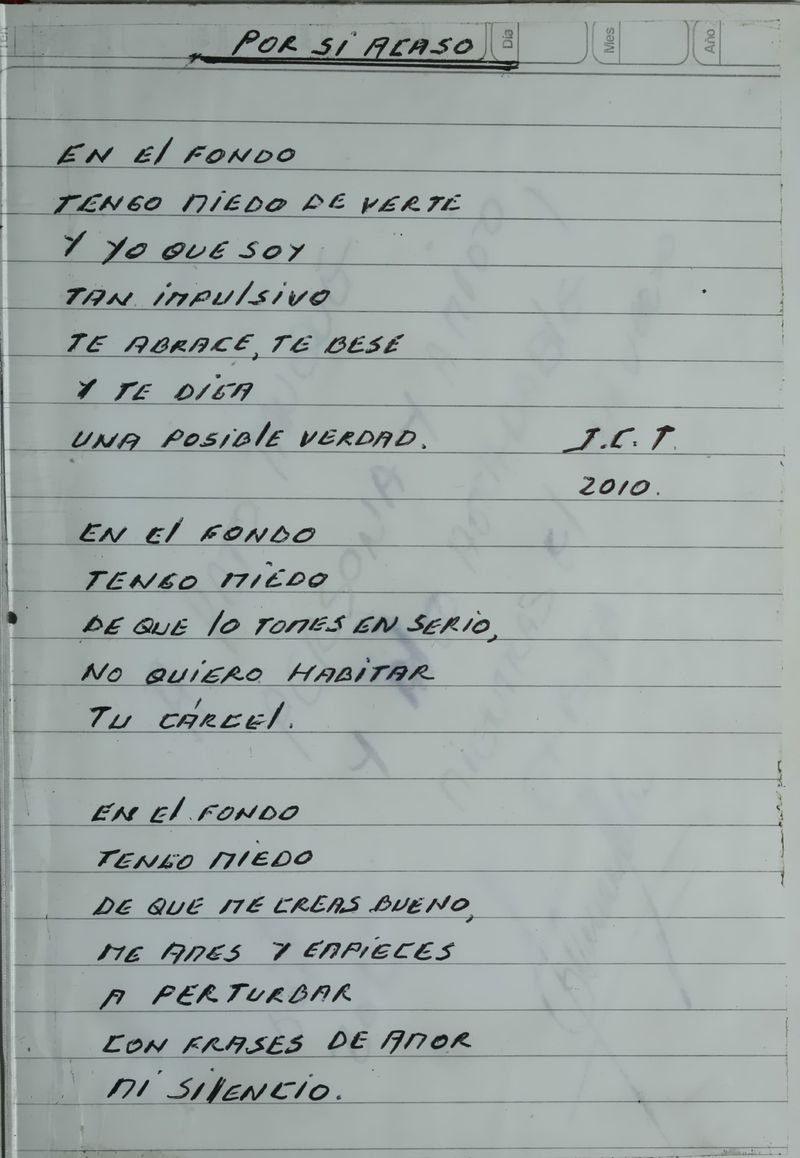 POR SI ACASO
Día
Mes
Año
EN El FONDO
TENGO MIEDO DE VERTE
Y YO QUE SOY
TAN IMPULSIVO
TE ABRACE, TE BESÉ
Y TE DIGA
UNA POSIBLE VERDAD.
J.C.T.
2010.
EN El FONDO
TENGO MIEDO
DE QUE lO TOMES EN SERIO,
NO QUIERO HABITAR
TU CÁRCEl.
EN El FONDO
TENGO MIEDO
DE QUE ME CREAS BUENO,
ME AMES Y EMPIECES
A PERTURBAR
CON FRASES DE AMOR
MI SILENCIO.